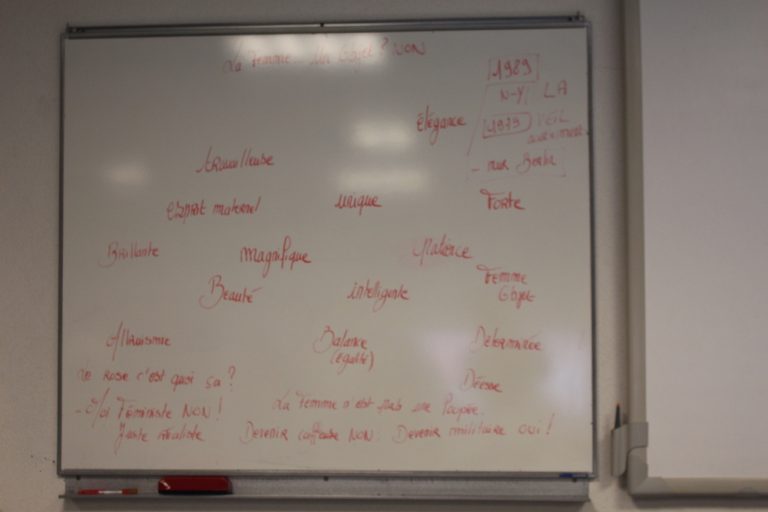 La Femme Un Objet? NON
1989
N-Y LA
élégance
1929
- mur Berlin
travailleuse
esprit maternel
unique
Forte
Brillante
magnifique
Patience
Beauté
intelligente
Femme
Objet
Altruisme
Balance
(égalité)
Déterminée
Le rose c'est quoi ça?
Déesse
- Moi Féministe NON!
La Femme n'est pas une Poupée.
Juste réaliste
Devenir coiffeuse NON! Devenir militaire oui!